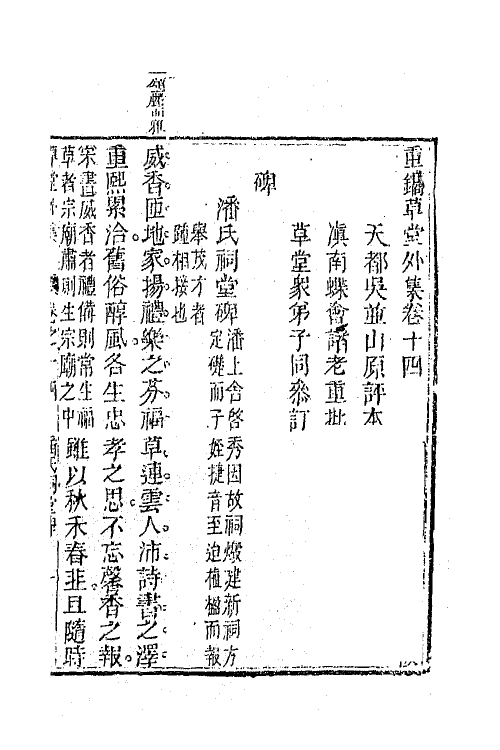 重鐫草堂外集卷十四
天都吳並山原評本
滇南蝶會諸老重批
草堂衆弟子同叅訂
碑
潘氏祠堂碑潘上舍啓秀因故祠燬建新祠方
定礎而子姪捷音至迨植楹而報
舉茂才者
踵相接也
頌麗而雅
威香匝地家揚禮樂之芬福草連雲人沛詩書之澤
重熙累洽舊俗醇風各生忠孝之思不忘馨香之報
宋書威香者禮備則常生福
草者宗廟肅則生宗廟之中
雖以秋禾春韭且隨時
草堂外集 卷之十四 潘氏祠堂碑 一